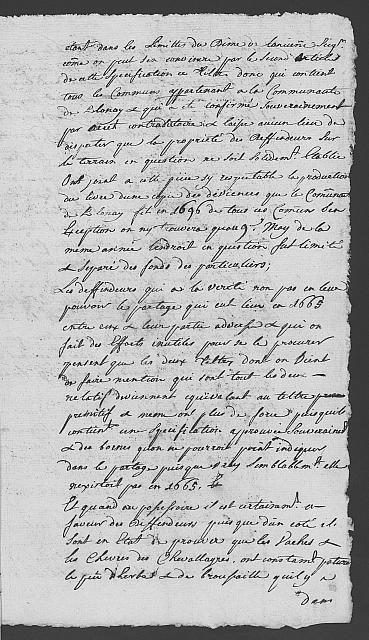 étant dans les Limittes du Dime de lancienne Seigr.
come on peut sen convaincre par le Second article
de cette Specification ce Titre donc qui contient
tous les Communs appartenant a la Communauté
de Blonay & qui a été confirmé Souverainement
par arrêt contradictoire ne laisse aucun lieu de
disputer que la proprieté des deffendeurs Sur
le terrain en question ne soit Solidemt. Etablie
Ont joint a cette piece Sy respectable la production
du livre dune copie des devicences que la Comunauté
de Blonay fit en 1696 de tous ces Comuns Sen
Exception on ny trouvera que au 9e. May de la
meme année lendroit en question fut limité
& Separé des fonds des particuliers;
Les deffendeurs qui a la verité non pas en leur
pouvoir le partage qui eut lieu en 1665
entre eux & leur partie adverse & qui on
fait des Efforts inutiles pour se le procurer
pensent que les deux Tittres dont on Vient
de faire mention qui sont tout les deux
relatif deviennent equivalant au tittre
primitif & meme ont plus de force puisquil
contient une Specification aprouvée Souveraine
& des bornes quon ne pourroit point indiquer
dans le partage puisque vray Semblablemt. elle
nexistoit pas en 1665.
Et quand au possessoire il est certainemt. a
faveur des deffendeurs puis que dun coté ils
Sont en Etat de prouver que les Vaches &
les Chevres des Chevallayres, ont constament paturé
le peu dherbe & de broussaille quil y a
dans